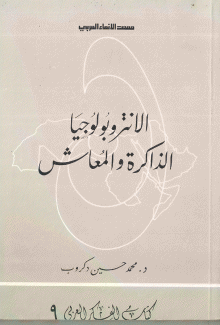 معهد الإنماء العربي
الانتروبولوجيا
الذاكرة والمعاش
د. محمد حسين دكروب
كتاب الفكر العربي ٩